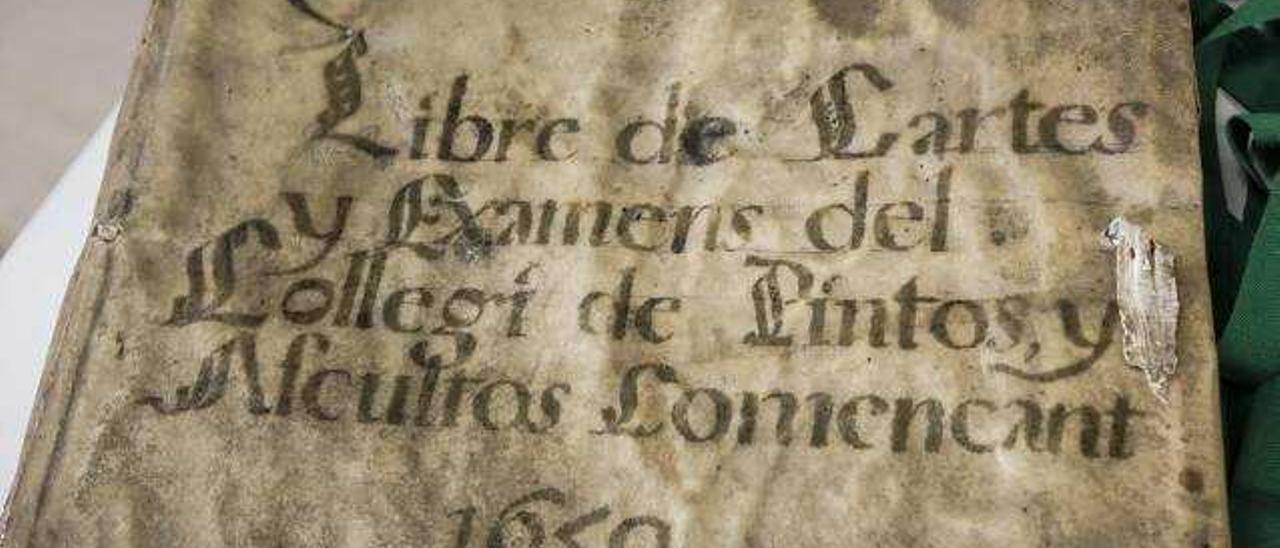 Libre de Cartes
y Examens del
Collegi de Pintos, y
Alcultros Comencant